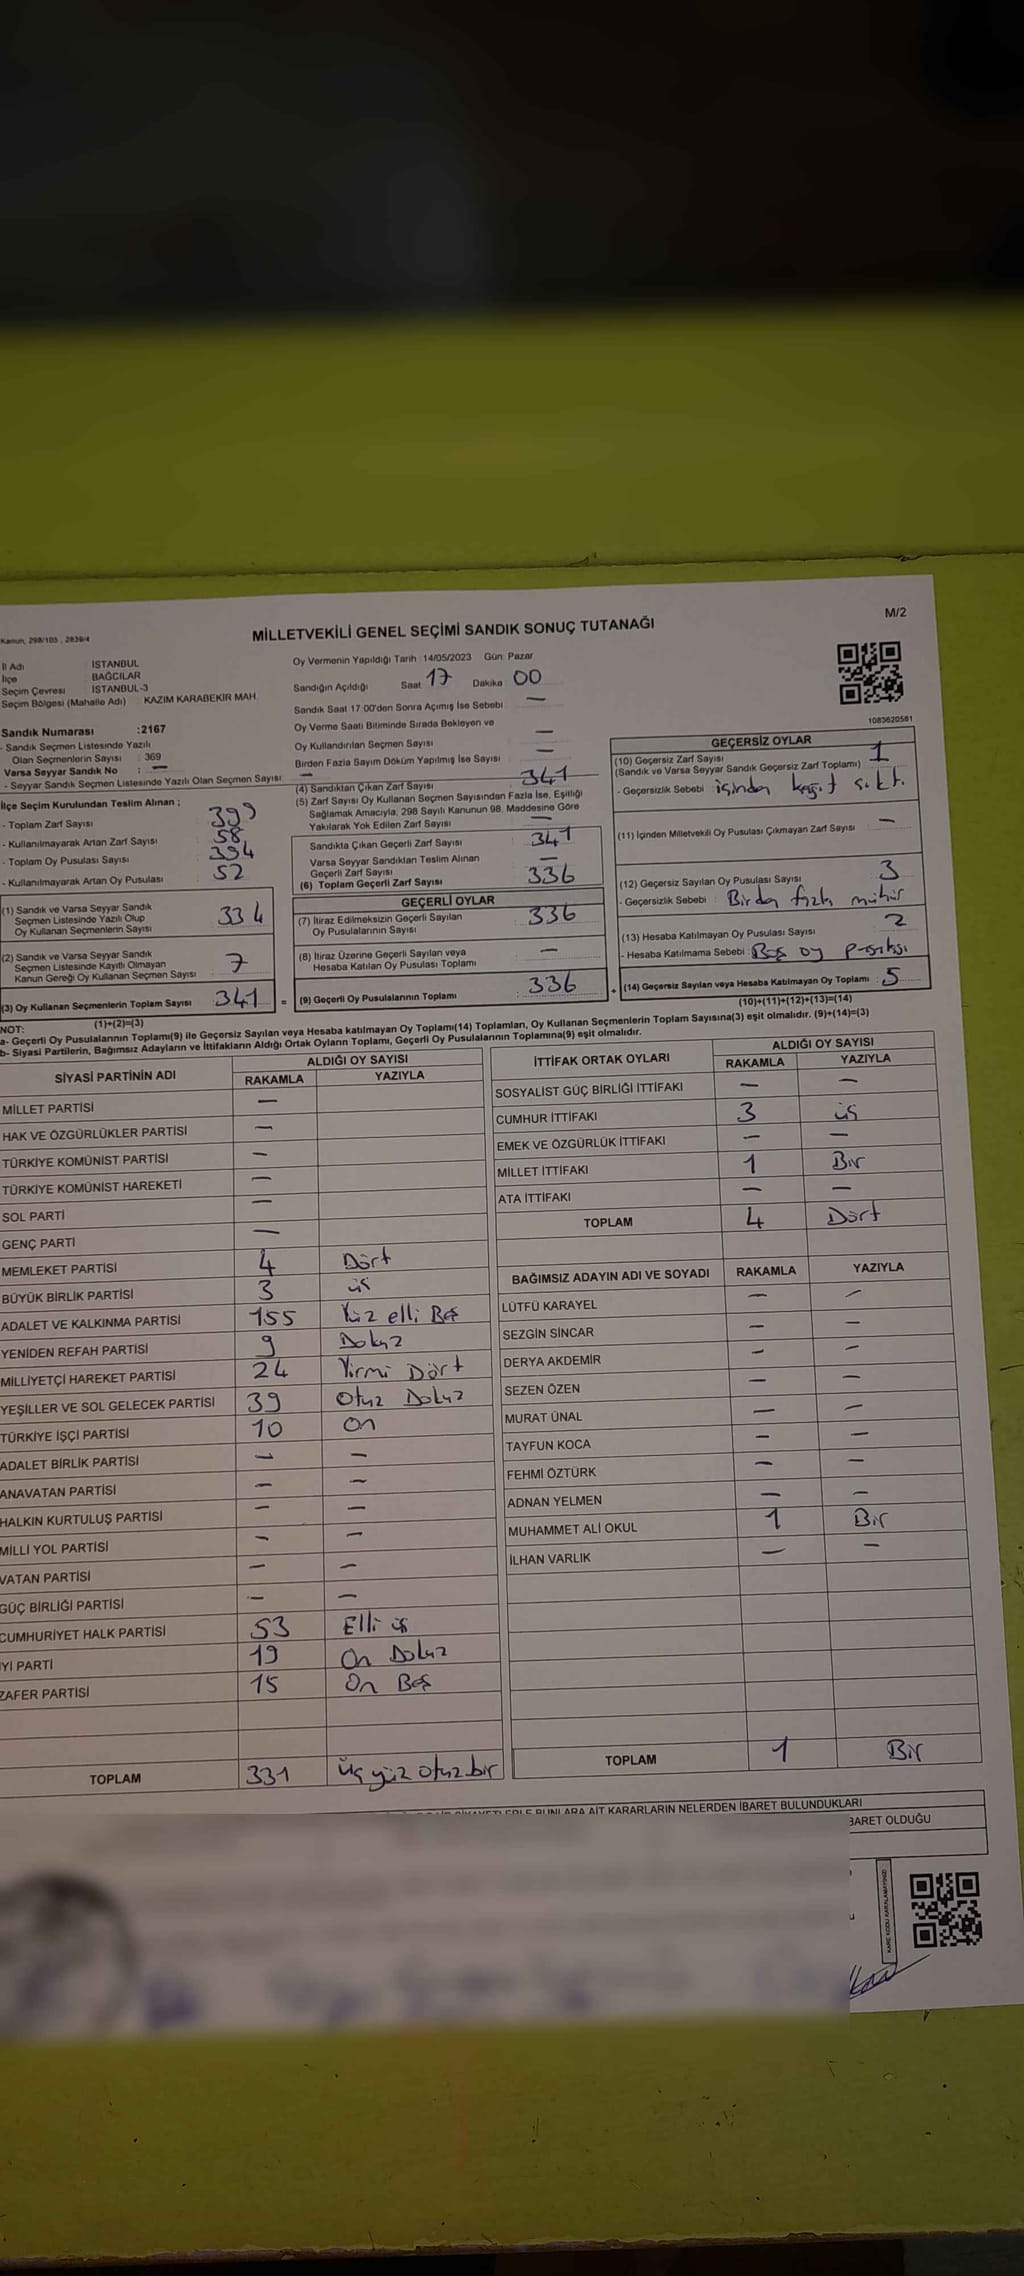 Kanun, 298/105 , 2839/4
M/2
MİLLETVEKİLİ GENEL SEÇİMİ SANDIK SONUÇ TUTANAĞI
İl Adı : İSTANBUL
İlçe : BAĞCILAR
Seçim Çevresi : İSTANBUL-3
Seçim Bölgesi (Mahalle Adı) : KAZIM KARABEKİR MAH.
Sandık Numarası :2167
- Sandık Seçmen Listesinde Yazılı
Olan Seçmenlerin Sayısı : 369
Varsa Seyyar Sandık No : —
- Seyyar Sandık Seçmen Listesinde Yazılı Olan Seçmen Sayısı: —
İlçe Seçim Kurulundan Teslim Alınan ;
- Toplam Zarf Sayısı : 399
- Kullanılmayarak Artan Zarf Sayısı : 58
- Toplam Oy Pusulası Sayısı : 394
- Kullanılmayarak Artan Oy Pusulası : 52
(1) Sandık ve Varsa Seyyar Sandık
Seçmen Listesinde Yazılı Olup
Oy Kullanan Seçmenlerin Sayısı : 334
(2) Sandık ve Varsa Seyyar Sandık
Seçmen Listesinde Kayıtlı Olmayan
Kanun Gereği Oy Kullanan Seçmen Sayısı : 7
(3) Oy Kullanan Seçmenlerin Toplam Sayısı : 341 =
(1)+(2)=(3)
Oy Vermenin Yapıldığı Tarih :14/05/2023 Gün: Pazar
Sandığın Açıldığı Saat 17 Dakika 00
Sandık Saat 17:00'den Sonra Açımış İse Sebebi : —
Oy Verme Saati Bitiminde Sırada Bekleyen ve
Oy Kullandırılan Seçmen Sayısı : —
Birden Fazla Sayım Döküm Yapılmış İse Sayısı : —
(4) Sandıktan Çıkan Zarf Sayısı : 341
(5) Zarf Sayısı Oy Kullanan Seçmen Sayısından Fazla İse, Eşitliği
Sağlamak Amacıyla, 298 Sayılı Kanunun 98. Maddesine Göre
Yakılarak Yok Edilen Zarf Sayısı : —
Sandıkta Çıkan Geçerli Zarf Sayısı : 341
Varsa Seyyar Sandıktan Teslim Alınan
Geçerli Zarf Sayısı : —
(6) Toplam Geçerli Zarf Sayısı : 336
GEÇERLİ OYLAR
(7) İtiraz Edilmeksizin Geçerli Sayılan
Oy Pusulalarının Sayısı : 336
(8) İtiraz Üzerine Geçerli Sayılan veya
Hesaba Katılan Oy Pusulası Toplamı : —
(9) Geçerli Oy Pusulalarının Toplamı : 336 +
1083620581
GEÇERSİZ OYLAR
(10) Geçersiz Zarf Sayısı : 1
(Sandık ve Varsa Seyyar Sandık Geçersiz Zarf Toplamı)
- Geçersizlik Sebebi : içinden kağıt
(11) İçinden Milletvekili Oy Pusulası Çıkmayan Zarf Sayısı : —
(12) Geçersiz Sayılan Oy Pusulası Sayısı : 3
- Geçersizlik Sebebi : Birden fazla mühür
(13) Hesaba Katılmayan Oy Pusulası Sayısı : 2
- Hesaba Katılmama Sebebi : Boş oy
(14) Geçersiz Sayılan veya Hesaba Katılmayan Oy Toplamı : 5
(10)+(11)+(12)+(13)=(14)
NOT:
a- Geçerli Oy Pusulalarının Toplamı(9) ile Geçersiz Sayılan veya Hesaba katılmayan Oy Toplamı(14) Toplamları, Oy Kullanan Seçmenlerin Toplam Sayısına(3) eşit olmalıdır. (9)+(14)=(3)
b- Siyasi Partilerin, Bağımsız Adayların ve İttifakların Aldığı Ortak Oyların Toplamı, Geçerli Oy Pusulalarının Toplamına(9) eşit olmalıdır.
SİYASİ PARTİNİN ADI ALDIĞI OY SAYISI
RAKAMLA YAZIYLA
MİLLET PARTİSİ —
HAK VE ÖZGÜRLÜKLER PARTİSİ —
TÜRKİYE KOMÜNİST PARTİSİ —
TÜRKİYE KOMÜNİST HAREKETİ —
SOL PARTİ —
GENÇ PARTİ —
MEMLEKET PARTİSİ 4 Dört
BÜYÜK BİRLİK PARTİSİ 3 üç
ADALET VE KALKINMA PARTİSİ 155 Yüz elli Beş
YENİDEN REFAH PARTİSİ 9 Dokuz
MİLLİYETÇİ HAREKET PARTİSİ 24 Yirmi Dört
YEŞİLLER VE SOL GELECEK PARTİSİ 39 Otuz Dokuz
TÜRKİYE İŞÇİ PARTİSİ 10 On
ADALET BİRLİK PARTİSİ — —
ANAVATAN PARTİSİ — —
HALKIN KURTULUŞ PARTİSİ — —
MİLLİ YOL PARTİSİ — —
VATAN PARTİSİ — —
GÜÇ BİRLİĞİ PARTİSİ — —
CUMHURİYET HALK PARTİSİ 53 Elli üç
İYİ PARTİ 19 On Dokuz
ZAFER PARTİSİ 15 On Beş
TOPLAM 331 Üçyüz otuz bir
İTTİFAK ORTAK OYLARI ALDIĞI OY SAYISI
RAKAMLA YAZIYLA
SOSYALİST GÜÇ BİRLİĞİ İTTİFAKI — —
CUMHUR İTTİFAKI 3 üç
EMEK VE ÖZGÜRLÜK İTTİFAKI — —
MİLLET İTTİFAKI 1 Bir
ATA İTTİFAKI — —
TOPLAM 4 Dört
BAĞIMSIZ ADAYIN ADI VE SOYADI RAKAMLA YAZIYLA
LÜTFÜ KARAYEL — —
SEZGİN SİNCAR — —
DERYA AKDEMİR — —
SEZEN ÖZEN — —
MURAT ÜNAL — —
TAYFUN KOCA — —
FEHMİ ÖZTÜRK — —
ADNAN YELMEN — —
MUHAMMET ALİ OKUL 1 Bir
İLHAN VARLIK — —
TOPLAM 1 Bir
BUNLARA AİT KARARLARIN NELERDEN İBARET BULUNDUKLARI
BARET OLDUĞU
KARE KODU KARALAMAYINIZ